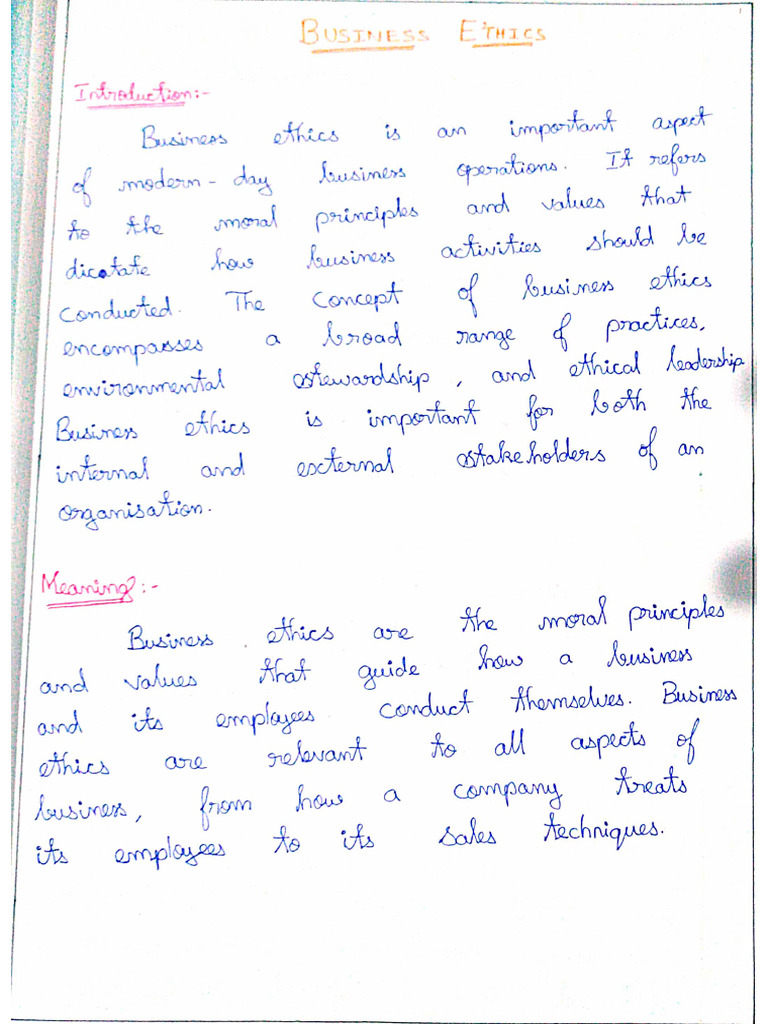 BUSINESS ETHICS
Introduction:-
Business ethics is an important aspect
of modern-day business operations. It refers
to the moral principles and values that
dicatate how business activities should be
conducted. The concept of business ethics
encompasses a broad range of practices,
environmental stewardship, and ethical leadership
Business ethics is important for both the
internal and external stakeholders of an
organisation.
Meaning:-
Business ethics are the moral principles
and values that guide how a business
and its employees conduct themselves. Business
ethics are relevant to all aspects of
business, from how a company treats
its employees to its sales techniques.